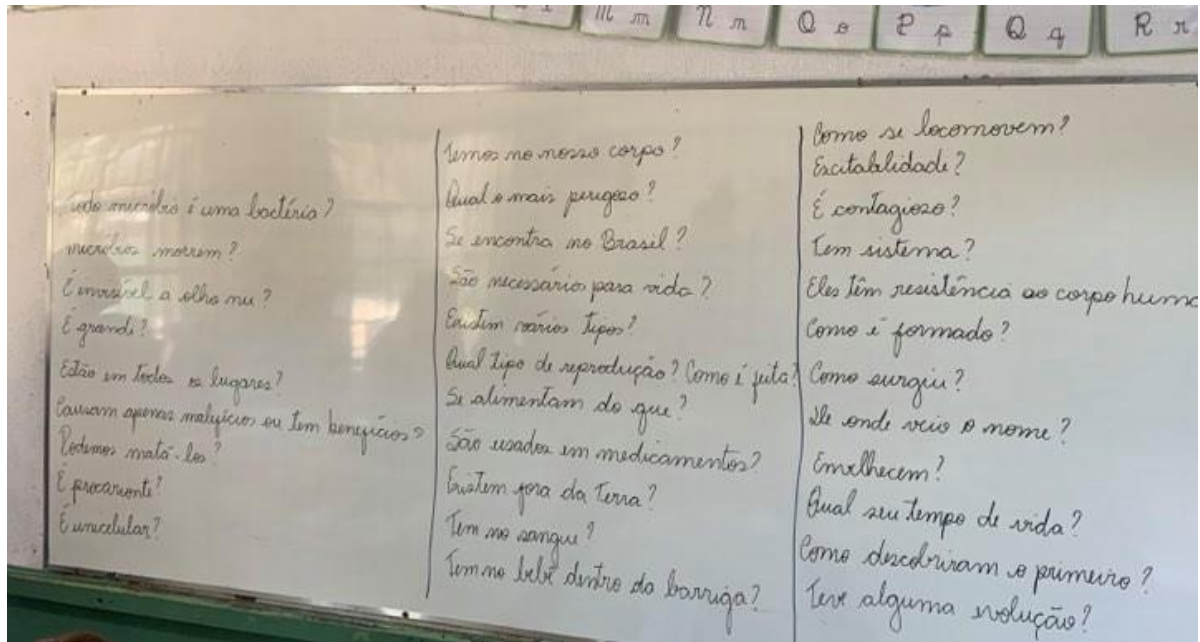 M m
N n
O o
P p
Q q
R r
Todo micróbio é uma bactéria?
micróbios morrem?
É invisível a olho nu?
É grande?
Estão em todos os lugares?
Causam apenas malefícios ou tem benefícios?
Podemos matá-los?
É procarionte?
É unicelular?
Temos no nosso corpo?
Qual o mais perigoso?
Se encontra no Brasil?
São necessários para vida?
Existem vários tipos?
Qual tipo de reprodução? Como é feita?
Se alimentam do que?
São usados em medicamentos?
Existem fora da Terra?
Tem no sangue?
Tem no bebê dentro da barriga?
Como se locomovem?
Excitabilidade?
É contagioso?
Tem sistema?
Eles têm resistência ao corpo huma
Como é formado?
Como surgiu?
De onde veio o nome?
Envelhecem?
Qual seu tempo de vida?
Como descobriram o primeiro?
Teve alguma evolução?